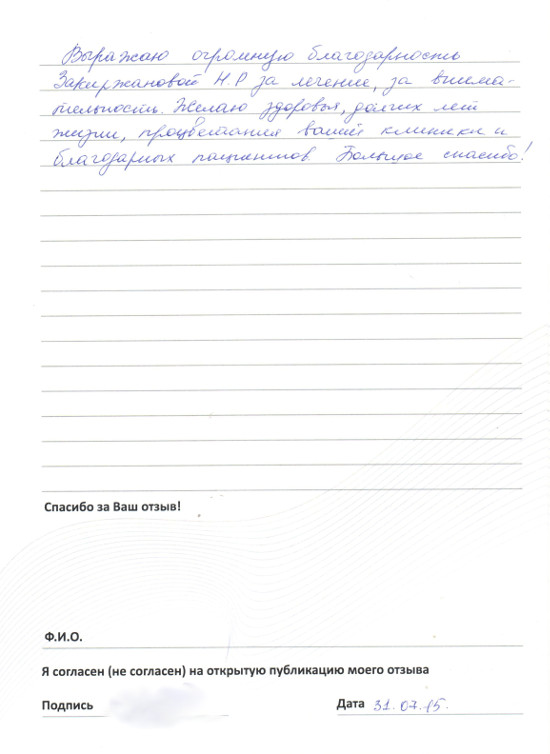 Выражаю огромную благодарность
Закиржановой Н.Р за лечение, за внима-
тельность. Желаю здоровья, долгих лет
жизни, процветания вашей клиники и
благодарных пациентов. Большое спасибо!
Спасибо за Ваш отзыв!
Ф.И.О.
Я согласен (не согласен) на открытую публикацию моего отзыва
Подпись
Дата 31.07.15.